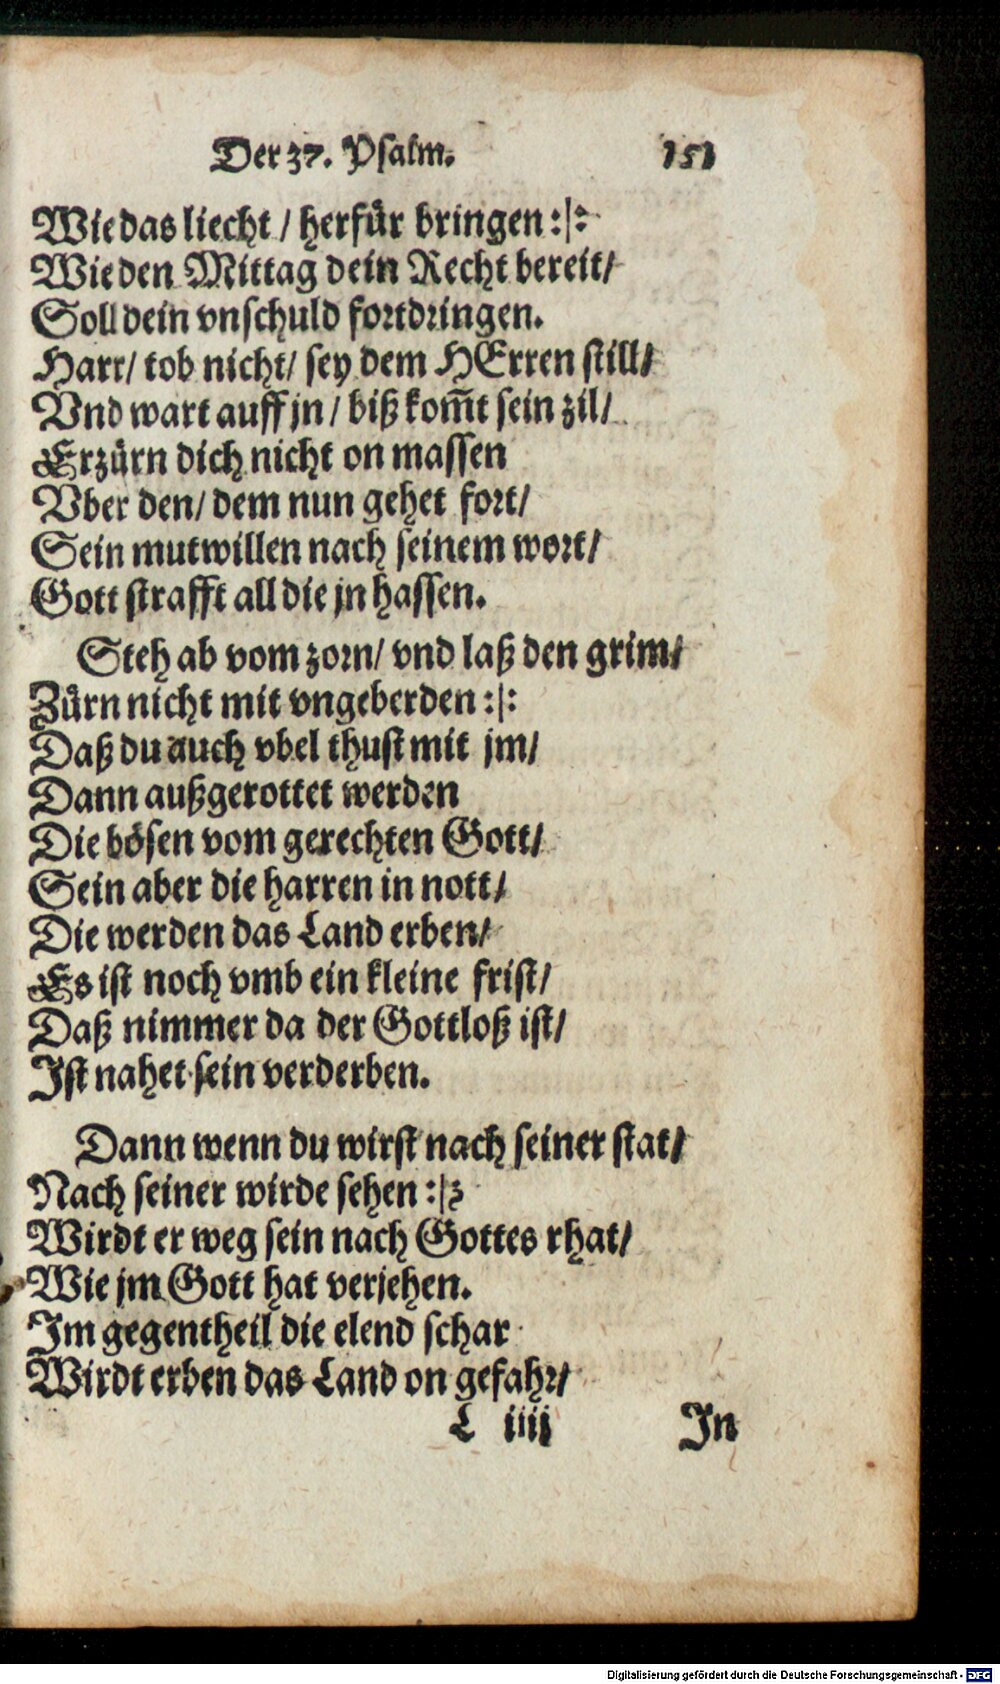 Der 37. Psalm. 151
Wie das liecht / herfür bringen :|:
Wie den Mittag dein Recht bereit/
Soll dein vnschuld fortdringen.
Harr/ tob nicht/ sey dem HErren still/
Vnd wart auff jn / biß kom̃t sein zil/
Erzürn dich nicht on massen
Vber den/ dem nun gehet fort/
Sein mutwillen nach seinem wort/
Gott strafft all die jn hassen.
Steh ab vom zorn/ vnd laß den grim/
Zürn nicht mit vngeberden :|:
Daß du auch vbel thust mit jm/
Dann außgerottet werden
Die bösen vom gerechten Gott/
Sein aber die harren in nott/
Die werden das Land erben/
Es ist noch vmb ein kleine frist/
Daß nimmer da der Gottloß ist/
Ist nahet sein verderben.
Dann wenn du wirst nach seiner stat/
Nach seiner wirde sehen :|:
Wirdt er weg sein nach Gottes rhat/
Wie jm Gott hat versehen.
Im gegentheil die elend schar
Wirdt erben das Land on gefahr/
L iiij In
Digitalisierung gefördert durch die Deutsche Forschungsgemeinschaft - DFG